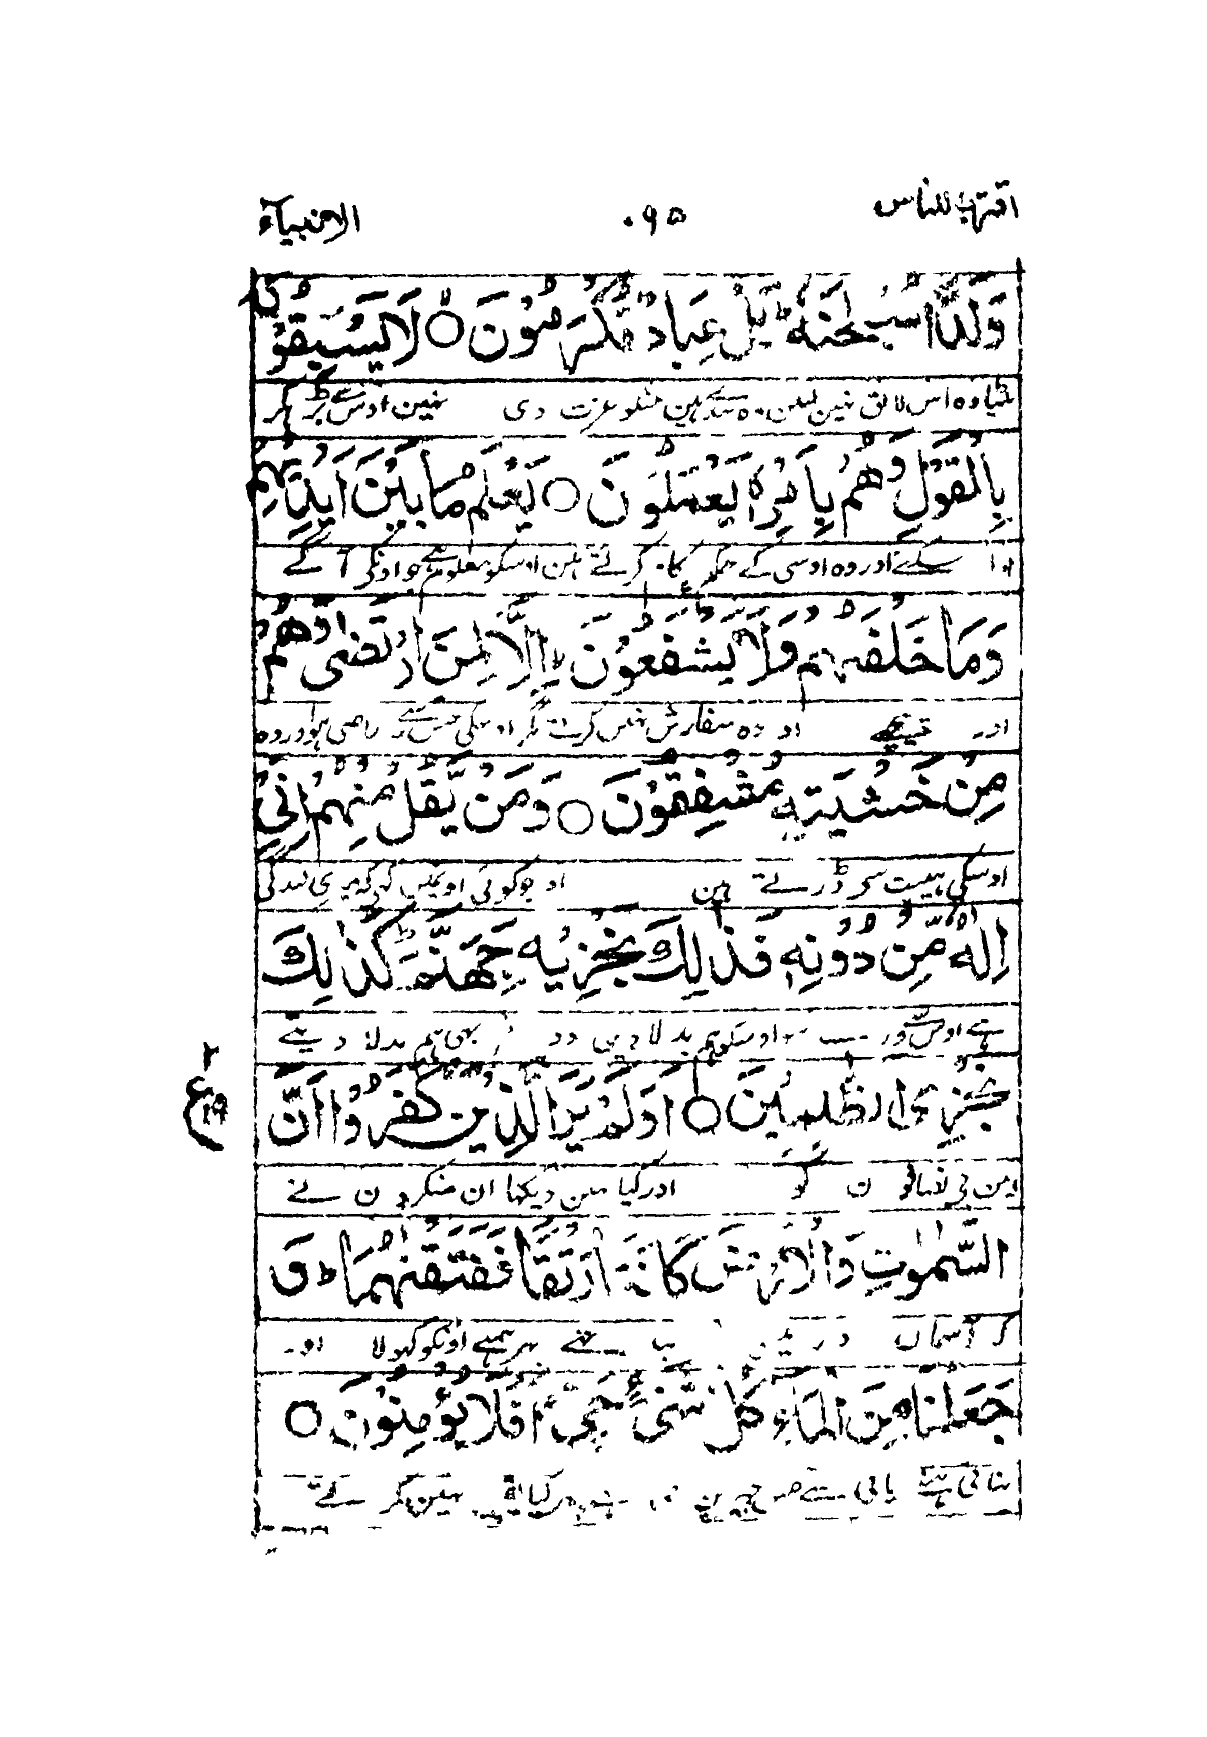 اقترب للناس ٥٩٠ الانبیآء
وَلَدًا سُبْحٰنَهٗ ؕ بَلْ عِبَادٌ مُّكْرَمُوْنَ ۙ○ لَا يَسْبِقُوْنَهٗ
اس لائق نہین لیکن وہ بندے ہین جنکو عزت دی نہین اوس سے بڑہکر
بِالْقَوْلِ وَهُمْ بِاَمْرِهٖ يَعْمَلُوْنَ ○ يَعْلَمُ مَا بَيْنَ اَيْدِيْهِمْ
سکتے اور وہ اوسی کے حکم کرتے ہین اوسکو معلوم ہے جو اونکے آگے
وَمَا خَلْفَهُمْ وَلَا يَشْفَعُوْنَ اِلَّا لِمَنِ ارْتَضٰى وَهُمْ
اور پیچھے اور وہ سفارش نہین کرتے مگر اوسکی جس سے راضی ہو اور وہ
مِّنْ خَشْيَتِهٖ مُشْفِقُوْنَ ○ وَمَنْ يَّقُلْ مِنْهُمْ اِنِّيْٓ
اوسکی ہیبت سے ڈرتے ہین اور جو کوئی اونمین کہے کہ میری بندگی
اِلٰهٌ مِّنْ دُوْنِهٖ فَذٰلِكَ نَجْزِيْهِ جَهَنَّمَ ؕ كَذٰلِكَ
ہے اوس سے ورے سو اوسکو ہم بدلا دین دو یہی ہم بدلا دیتے
نَجْزِي الظّٰلِمِيْنَ ○ اَوَلَمْ يَرَ الَّذِيْنَ كَفَرُوْٓا اَنَّ
ہین بی انصافون کو اور کیا نہین دیکہا ان منکرون نے
٢ ع ١٩
السَّمٰوٰتِ وَالْاَرْضَ كَانَتَا رَتْقًا فَفَتَقْنٰهُمَا ؕ وَ
کہ آسمان بند تھے پھر ہمنے اونکو کھولا اور
جَعَلْنَا مِنَ الْمَآءِ كُلَّ شَيْءٍ حَيٍّ ؕ اَفَلَا يُؤْمِنُوْنَ ○
بنائی ہمنے پانی سے جس چیز مین پھر کیا یقین نہین کرتے